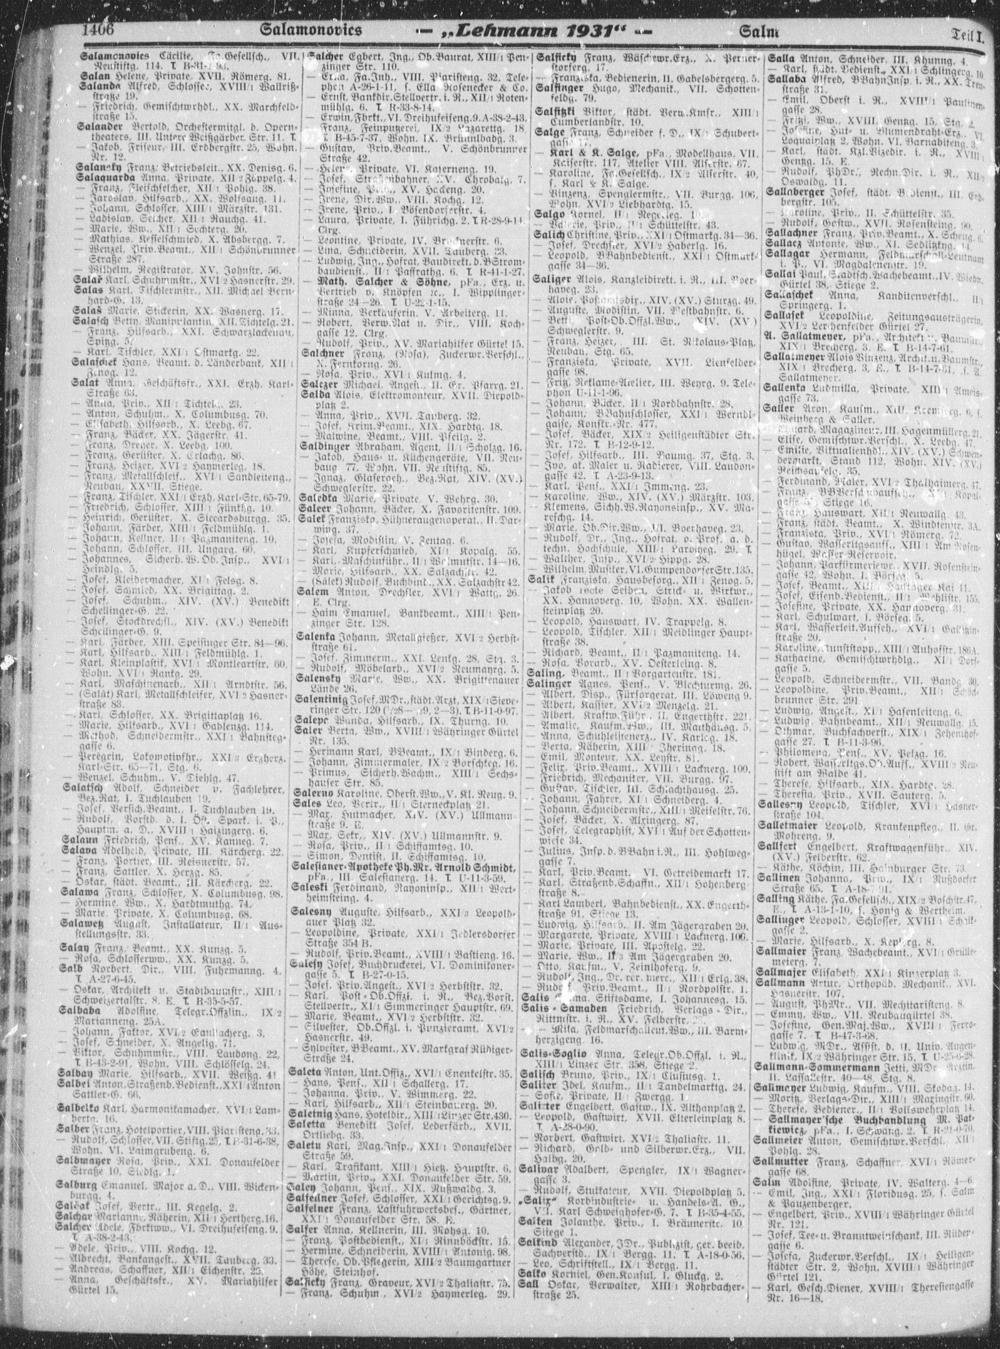 1406
Salamonovics
„Lehmann 1931“
Salm
Teil I.
Salamonovics Cäcilie, Gesellsch., VII.
Neustiftg. 114.
Salan Helene, Private, XVII. Römerg. 81.
Salanda Alfred, Schlosser, XVIII
straße 19.
— Friedrich, Gemischtwrhdl., XX. Marchfeld-
straße 15.
Salander Bertold, Orchestermitgl. d. Opern-
theaters, III. Untere Weißgärber Str. 11.
— Jakob, Friseur, III. Erdbergstr. 25, Wohn.
Nr. 12.
Salansky Franz, Betriebsleit., XX. Denisg. 6.
Salaquarda Anna, Private, XII Koppelg. 4.
— Franz, Fleischselcher, XII Pohlg. 38.
— Jaroslav, Hilfsarb., XX. Wolfsaug. 11.
— Johann, Schlosser, XIII Märzstr. 131.
— Ladislav, Selcher, XII Rauchg. 41.
— Marie, Ww., XII Sechterg. 20.
— Mathias, Kesselschmied, X. Absbergg. 7.
— Wenzel, Priv.Beamt., XII Schönbrunner
Straße 287.
— Wilhelm, Registrator, XV. Johnstr. 56.
Salaš Karl, Schuhmstr., XVI 2 Hasnerstr. 29.
Salas Karl, Tischlermstr., XII. Michael Bern-
hard-G. 13.
Salaš Marie, Stickerin, XX. Wasnerg. 17.
Salasch Betty, Manipulantin, XII. Tichtelg. 21.
— Franz, Hilfsarb., XXI. Schwarzlackenau,
Spitzg. 5.
— Karl, Tischler, XXI Ostmarkg. 22.
Salaschek Hans, Beamt. d. Länderbank, XII
Zinog. 12.
Salat Anna, Geschäftsfr., XXI. Erzh. Karl-
Straße 63.
— Anna, Priv., XII Tichtelg. 23.
— Anton, Schuhm., X. Columbusg. 70.
— Elisabeth, Hilfsarb., X. Leebg. 67.
— Franz, Bäcker, XX. Jägerstr. 41.
— Franz, Dreher, X. Leebg. 100.
— Franz, Gerüster, X. Erlachg. 86.
— Franz, Heizer, XVI 2 Haymerleg. 18.
— Franz, Metallschleif., XVI 1 Sandleiteng.,
Neubau, XXVII. Stiege.
— Franz, Tischler, XXI 1 Erzh. Karl-Str. 65-79.
— Friedrich, Schlosser, XIII Fünkhg. 10.
— Heinrich, Gerüster, X. Siccardsburgg. 35.
— Johann, Färber, XIII Feldmühlg. 1.
— Johann, Kellner, II Pazmaniteng. 10.
— Johann, Schlosser, III. Ungarg. 60.
— Johannes, Sicherh.W.Ob.Insp., XVI
Heindlg. 5.
— Josef, Kleidermacher, XI Felsg. 8.
— Josef, Schmied, XX. Brigittag. 2.
— Josef, Schuhm., XIV. (XV.) Benedikt
Schellinger-G. 22.
— Josef, Stockdrechsl., XIV. (XV.) Benedikt
Schellinger-G. 9.
— Karl, Färber, XIII. Speisinger Str. 84—96.
— Karl, Hilfsarb., XIII Feldmühlg. 1.
— Karl, Kleinplastik, XVI Montleartstr. 60,
Wohn. XVI Rankg. 29.
— Karl, Maschinenarb., XII Arndtstr. 56.
— (Salát) Karl, Metallschleifer, XVI 2 Hasner-
straße 83.
— Karl, Schlosser, XX. Brigittaplatz 16.
— Marie, Hilfsarb., XVI Gablenzg. 114.
— Method, Schneidermstr., XXI Bahnsteg-
gasse 6.
— Peregrin, Lokomotivfhr., XXI 2 Erzherz.
Karl-Str. 65—71, Stg. 6.
— Wenzel, Schuhm., V. Diehlg. 47.
Salatsch Adolf, Schneider u. Fachlehrer,
Bez.Rat, I. Tuchlauben 19.
— Josef, Beamt., I. Tuchlauben 19.
— Rudolf, Vorstd. d. I. Öst. Spark. i. P.,
Hauptm. a. D., XVIII Haizingerg. 6.
Salaun Friedrich, Pens., XV. Kanneg. 7.
Salava Adelheid, Private, III. Kärcherg. 22.
— Franz, Portier, III. Reisnerstr. 57.
— Franz, Sattler, X. Herzg. 85.
— Oskar, städt. Beamt., III. Kärcherg. 22.
Salawa Franz, Schlosser, X. Columbusg. 98.
— Hermine, Ww., X. Hardtmuthg. 74.
— Marie, Private, X. Columbusg. 68.
Salawetz August, Installateur, II Aus-
stellungsstr. 33.
Salay Franz, Beamt., XX. Kunzg. 5.
— Rosa, Schlosserww., XX. Kunzg. 5.
Salb Norbert, Dir., VIII. Fuhrmanng. 4.
T. A-27-6-45.
— Oskar, Architekt u. Stadtbaumstr., XIII
Schweizertalstr. 8. E. T. R-35-5-57.
Salbaba Adolfine, Telegr.Offizin., IX 2
Mariannengs. 25A.
— Johann, Faktor, XVI 2 Gaullacherg. 3.
— Josef, Schneider, X. Angelig. 71.
— Viktor, Schuhmstr., VIII. Laudong. 22,
T. B-43-2-91, Wohn. VIII. Schlösselg. 24.
Salbay Marie, Hilfsarb., XVII. Weißg. 41.
Salbei Anton, Straßenb.Bedienst., XXI Anton
Sattler-G. 66.
Salbelko Karl, Harmonikamacher, XVI Lam-
bertg. 16.
Salber Franz, Hotelportier, VIII. Piaristeng. 33.
— Rudolf, Schlosser, VII. Stiftg. 25, T. B-31-6-38,
Wohn. VI. Laimgrubeng. 6.
Salbmayer Rosa, Priv., XXI. Donaufelder
Straße 10, Siedlg. 1.
Salburg Emanuel, Major a. D., VIII. Wicken-
burgg. 4.
Salcak Josef, Vertr., III. Kegelg. 2.
Salchar Mariann, Näherin, XII Hertherg. 16.
Salcher Adele, Fabrikww., VI. Dreihufeiseng. 9.
T. A-38-2-43.
— Adele, Priv., VIII. Kochg. 12.
— Albrecht, Bankangest., XVII. Taubergg. 33.
— Andreas, Schaffner, XIII Eichenstr. 25.
— Anna, Geschäftsfr., XV. Mariahilfer
Gürtel 15.
Salcher Egbert, Ing., Ob.Baurat, XIII Pen-
zinger Str. 110.
— Erna, Fa.Inh., VIII. Piaristeng. 32, Tele-
phon A-26-1-11, s. Ella Rosenecker & Co.
— Ernst, Bankdir.Stellvertr. i. R., XII Roten-
mühlg. 6. T. R-33-8-14.
— Erwin, Fbrkt., VI. Dreihufeiseng. 9. A-38-2-43.
— Franz, Feinputzerei, IX 2 Lazarettg. 18,
T. B-45-7-37, Wohn. IX. Brünnlbadg. 3.
— Gustav, Priv.Beamt., V. Schönbrunner
Straße 42.
— Helene, Private, VI. Königseg. 19.
— Josef, Straßenbahner, XV. Chrobakg. 7.
— Josefine, Priv., XV. Hackeng. 20.
— Irene, Dir.Ww., VIII. Kochg. 12.
— Irene, Priv., I. Bösendorferstr. 4.
— Laura, Private, I. Führichg. 2. T. R-28-9-14.
Clrg.
— Leontine, Private, IV. Brucknerstr. 6.
— Lina, Schneiderin, XVII. Taubergg. 23.
— Ludwig, Ing., Hofrat, Baudirekt. d. BStrom-
baudienst., II Paffrathg. 6. T. R-41-1-27.
— Math. Salcher & Söhne, pFa., Erz. u.
Vertrieb v. Knöpfen 2c., I. Wipplinger-
straße 24—26. T. U-22-1-15.
— Minna, Verkäuferin, V. Arbeiterg. 11.
— Robert, Verw.Rat u. Dir., VIII. Koch-
gasse 12. Clrg.
— Rudolf, Priv., XV. Mariahilfer Gürtel 15.
Salchner Franz, Zuckerw.Verschl.,
X. Fernkorng. 26.
— Rosa, Priv., XVI Kulmg. 4.
Salczer Michael, Angest., II. Gr. Pfarrg. 21.
Salda Alois, Elektromonteur, XVII. Diepold-
platz 2.
— Anna, Priv., XVII. Taubergg. 32.
— Josef, Krim.Beamt., XIX. Hardtg. 18.
— Malwine, Beamt., VIII. Pfeilg. 2.
Saldinger Abraham, Agent, II Scholzg. 16.
— Jakob, Haus- u. Küchengeräte, VII. Neu-
baug. 77, Wohn. VII. Neustiftg. 85.
— Ignaz, Glaserech., Bez.Rat, XIV. (XV.)
Schweglerstr. 22.
Saledka Marie, Private, V. Wehrg. 30.
Saleer Johann, Bäcker, X. Favoritenstr. 109.
Salek Franziska, Hühneraugenoperat., II. Dar-
wing. 37.
— Josefa, Modistin, V. Zentag. 6.
— Karl, Kupferschmied, XI Kopalg. 55.
— Karl, Maschinführ., II Wolfmutstr. 14—16.
— Marie, Hilfsarb., XX. Salzachstr. 42.
— (Sálek) Rudolf, Buchbind., XX. Salzachstr. 42.
Salem Anton, Drechsler, XVI Wattg. 26.
E. Clrg.
— Haim Emanuel, Bankbeamt., XIII Pen-
zinger Str. 128.
Salenka Johann, Metallgießer, XVI 2 Herbst-
straße 61.
— Josef, Zimmerm., XXI. Lenkg. 28, Stg. 3.
— Rudolf, Möbelarb., XVI 2 Neumanng. 2.
Salensky Marie, Ww., XX. Brigittenauer
Lände 26.
Salentinig Josef, MDr., städt. Arzt, XIX Sieve-
ringer Str. 120 T. B-11-0-97.
Salepr Wanda, Hilfsarb., IX. Thurng. 10.
Saler Berta, Ww., XVIII Währinger Gürtel
Nr. 135.
— Hermann Karl, BBeamt., IX Binderg. 6.
— Johann, Zimmermaler, IX 2 Borschkeg. 16.
— Primus, Sicherh.Wachm., XIII Sechs-
hauser Str. 85.
Salerno Karoline, Oberst.Ww., V. Kl. Neug. 9.
Sales Leo, Vertr., II Sterneckplatz 21.
— Max, Hutmacher, XIV. (XV.) Ullmann-
straße 9. E.
— Max, Sekr., XIV. (XV.) Ullmannstr. 9.
— Rosa, Priv., II Schiffamtsg. 10.
— Simon, Dentist, II. Schiffamtsg. 10.
Salesianer-Apotheke Ph.Mr. Arnold Schmidt,
pFa., III Salesianerg. 14. T. U-11-3-59.
Saleski Ferdinand, Rayoninsp., XII Wert-
heimsteing. 4.
Salesny Auguste, Hilfsarb., XXI 2 Leopold-
auer Platz 32.
— Leopoldine, Private, XXI Jedlersdorfer
Straße 354 B.
— Rudolf, Priv.Beamt., XVIII Bastieng. 16.
Salesy Josef, Buchdruckerei, VI. Dominikaner-
gasse 5. T. B-27-0-15.
— Josef, Priv.Angest., XVI 2 Herbststr. 32.
— Karl, Post-Ob.Offzl. i. R., Bez.Vorst.
Stellvertr., XI Simmeringer Hauptstr. 69.
— Marie, Beamt., XVI 2 Herbststr. 32.
— Silvester, Ob.Offzl. i. Punzieramt, XVI 2
Hasnerstr. 49.
— Sylvester, BBeamt., XV. Markgraf Rüdiger-
Straße 24.
Saleta Anton, Unt.Offiz., XVI Enenkelstr. 35.
— Hans, Pens., XII Schallerg. 17.
— Johanna, Priv., V. Wimmerg. 22.
— Karl, Hilfsarb., XII Steinbauerg. 20.
Saletnig Hans, Hoteldir., XIII Linzer Str. 430.
Saletta Benedikt Josef, Lederfärb., XVII.
Ortliebg. 33.
Saletu Karl, Mag.Insp., XXI Donaufelder
Straße 59.
— Karl, Trafikant, XIII Hietz. Hauptstr. 6.
— Martin, Priv., XXI. Donaufelder Str. 59.
Saley Johann, Pens., XIX. Rußwaldg. 3.
Salfeilner Josef, Schlosser, XXI Gerichtsg. 9.
Salfelner Franz, Lastfuhrwerksbes., Gärtner,
XXI Donaufelder Str. 58. E.
Salfer Anna, Kellnerin, III. Mohsg. 10.
— Franz, Postbedienst., XII Rinnböckstr. 15.
— Hermine, Schneiderin, XVIII Antonig. 98.
— Therese, Ob.Pflegerin, XIII 2 Baumgartner
Höhe, Steinhof.
Salficky Franz, Graveur, XVI 2 Thaliastr. 75.
— Franz, Schuhm., XVI 2 Haymerleg. 29.
Salficky Franz, Wäschewr.Erz., X. Perner-
storferg. 17.
— Franziska, Bedienerin, II. Gabelsbergerg. 5.
Salfinger Hugo, Mechanik., VII. Schotten-
feldg. 79.
Salfitzki Viktor, städt. Verw.Kmsr., XIII
Cumberlandstr. 10.
Salge Franz, Schneider f. D., IX Schubert-
gasse 17.
— Karl & K. Salge, pFa., Modellhaus, VII.
Kaiserstr. 117, Atelier VIII. Alserstr. 67.
— Karoline, Fa.Gesellsch., IX 2 Alserstr. 40,
s. Karl & K. Salge.
— Vinzenz, Spenglermstr., VII. Burgg. 106,
Wohn. XVI 2 Liebhartsg. 15.
Salgo Kornel, II
— Valerie, Priv., II Schüttelstr. 43.
Salich Christine, Priv., XXI Ostmarkg. 34—36.
— Josef, Drechsler, XVI 2 Haberlg. 16.
— Leopold, BBahnbedienst., XXI Ostmark-
gasse 34—36.
Saliger Alois, Kanzleidirekt. i. R., III. Boer-
haveg. 23.
— Alois, Postamtsdir., XIV. (XV.) Sturzg. 49.
— Auguste, Modistin, VII. Westbahnstr. 6.
— Post-Ob.Offzl.Ww., XIV. (XV.)
Schweglerstr. 9.
— Franz, Heizer, III. St. Nikolaus-Platz,
Neubau, Stg. 65.
— Franziska, Private, XVII. Lienfelder-
gasse 98.
— Fritz, Reklame-Atelier, III. Weyrg. 9. Tele-
phon U-11-1-96.
— Johann, Bäcker, II Nordbahnstr. 28.
— Johann, BBahnschlosser, XXI Werndl-
gasse, Konstr.-Nr. 477.
— Josef, Bäcker, XIX 2 Heiligenstädter Str.
Nr. 172. T. B-12-9-12.
— Josef, Hilfsarb., III. Paumg. 37, Stg. 3.
— Ivo, ak. Maler u. Radierer, VIII. Laudon-
gasse 42. T. A-23-9-13.
— Karl, Pens., XXI Immeng. 23.
— Karoline, Ww., XIV. (XV.) Märzstr. 103.
— Klemens, Sich.W.Rayonsinsp., XV. Ma-
roschg. 14.
— Marie, Ob.Dir.Ww., III. Boerhaveg. 23.
— Rudolf, Dr., Ing., Hofrat, o. Prof. a. d.
techn. Hochschule, XIII Larocheg. 29. T.
— Walther, Insp., XVI 2 Hippg. 28.
— Wilhelm, Musiker, VI. Gumpendorfer Str. 135.
Salik Franziska, Hausbesorg., XII Zenog. 5.
— Jakob Strick- u. Wirkw.,
XX. Hannoverg. 10, Wohn. XX. Wallen-
steinplatz 20.
— Leopold, Hauswart, IV. Trappelg. 8.
— Leopold, Tischler, XII Meidlinger Haupt-
straße 38.
— Richard, Beamt., II Pazmaniteng. 14.
— Rosa, Vorarb., XV. Oesterleing. 8.
Saling, Beamt., II Vorgartenstr. 181.
Salinger Agnes, Pens., V. Blechturmg. 26.
— Albert, Disp., Fürsorgerat, III. Löweng. 9.
— Albert, Kassier, XVI 2 Menzelg. 21.
— Albert, Kraftw.führ., II. Engerthstr. 221.
— Amalie, Kaufm.Ww., III. Marthausg. 5.
— Anna, Schuhleistenerz., IV. Karlsg. 18.
— Berta, Näherin, XIII Iheringg. 18.
— Emil, Monteur, XX. Leystr. 81.
— Felix, Priv.Beamt., XVIII Lacknerg. 100.
— Friedrich, Mechaniker, VII. Burgg. 97.
— Gustav, Tischler, III. Schlachthausg. 25.
— Johann, Fahrer, XII Schneiderg. 4.
— Johann, Schneidermstr., XIII Meiselstr. 76.
— Josef, Bäcker, X. Alxingerg. 87.
— Josef, Telegraphist, XVI Auf der Schotten-
wiese 34.
— Julius, Insp. d. BBahn i. R., III. Hohlweg-
gasse 7.
— Karl, Priv.Beamt., VI. Getreidemarkt 17.
— Karl, Straßenb.Schaffn., XII Hohenberg-
straße 8.
— Karl Lambert, Bahnbedienst., XX. Engerth-
straße 91, Stiege 13.
— Ludwig, Hilfsarb., II. Am Jägergraben 20.
— Margarete, Private, XVIII Lacknerg. 106.
— Marie, Private, III. Apostelg. 22.
— Marie, Ww., II Am Jägergraben 20.
— Otto, Kaufm., V. Zeinlhoferg. 9.
— Rudolf, Ing., Dr. rer. merc., XII Erlg. 38.
— Rudolf, Priv.Beamt., II Nordpolstr. 1.
Salis Stiftsdame, I. Johannesg. 15.
Salis-Samaden Friedrich, Verlags-Dir.,
Rittmstr. a. D., XV. Felberstr. 1.
— Mila, Feldmarschalleut.Ww., III. Barm-
herzigeng. 16.
Salis-Soglio Anna, Telegr.Ob.Offzl. i. R.,
XIII Linzer Str. 358, Stiege 2.
Salisch Bruno, Priv., IX Clusiusg. 1.
Saliter Idel, Kaufm., II Tandelmarktg. 24.
— Sofie, Private, II Zwergg. 1.
Saliterer Engelbert, Gastw., IX. Althanplatz 2.
— Leopold, Gastw., XVII. Elterleinplatz 6.
T. A-28-0-90.
— Norbert, Gastwirt, XVI 2 Thaliastr. 11.
— Richard, Gold- und Silberwr.Erz., VII.
Halbg. 20.
Salivar Adalbert, Spengler, IX Wagner-
gasse 3.
— Rudolf, Stukkateur, XVII. Diepoldplatz 5.
„Salix“ Korbindustrie- u. Handels-A. G.,
XVI. Karl Schweighofer-G. 7. T. B-35-4-55.
Salken Jolanthe, Priv., I. Bräunerstr. 10,
Stiege 1.
Salkind Alexander, JDr., Publizist, ger. beeid.
Sachverstd., IX Bergg. 11. T. A-18-0-56.
— Leo, Schriftstell., IX Bergg. 11.
Salko Korniel, Gen.Konsul, I. Gluckg. 2.
Sall Oskar, Verwalter, XIII Rohrbacher-
straße 25.
Salla Anton, Schneider, III. Khunng. 4.
— Karl, städt. Bedienst., XXI Schlingerg. 10.
Sallaba Alfred, BBahnInsp. i. R., XX. Treu-
straße 31.
— Emil, Oberst i. R., XVIII Paulinen-
gasse 28.
— Fritzi, Ww., XVIII. Genzg. 15, Stg. 2.
— Josefine, Hut- u. Blumendraht-Erz.,
Loquaiplatz 2, Wohn. VI. Barnabiteng. 3.
— Karl, städt. Kzl.Vizedir. i. R., XVIII
Gentzg. 15. E.
— Rudolf, PhDr., Rechn.Dir. i. R., XII
Oswaldg. 11.
Sallaberger Josef, städt. Bedienst., III. Erd-
bergstr. 105.
— Karoline, Priv., II. Schüttelstr. 35.
— Rudolf, Gastw., XVII. Rosensteing. 90.
Sallachner Franz, Priv.Beamt., X. Scheug. 6.
Sallacz Antonie, Ww., XI. Sedlitzkyg. 14.
Sallagar Hermann, Feldmarschalleutnant
i. P., VI. Magdalenenstr. 19.
Sallai Paul, Stadtsich.Wachebeamt., IV. Wiedn.
Gürtel 38, Stiege 2.
Sallaschek Anna, Kanditenverschl., II
Springerg. 1.
Sallasek Leopoldine, Zeitungsausträgerin,
XVI 2 Lerchenfelder Gürtel 27.
A. Sallatmeyer, pFa., Architekt u. Baumstr.,
XIX Brecherg. 3. E. T. B-14-7-61.
Sallatmeyer Alois Vinzenz, Archit. u. Baumstr.,
XIX Brecherg. 3. E., T. B-14-7-61, s. A.
Sallatmeyer.
Sallenka Ludmilla, Private, XIII Ameis-
gasse 73.
Saller Aron, Kaufm., XIII. Kremserg. 6, s.
Weinberg & Saller.
— Eduard, Magazineur, III. Hagenmüllerg. 21.
— Elise, Gemischtw.Verschl., X. Leebg. 47.
— Emilie, Viktualienhdl., XIV. (XV.) Schwen-
dermarkt, Stand 112, Wohn. XIV. (XV.)
Reichsapfelg. 35.
— Ferdinand, Maler, XVI 2 Thalhaimerg. 47.
— Franz, BBBerschaufseh., X. Kopal-
gasse Stiege 16.
— Franz, Hauswart, XII. Neuwallg. 43.
— Franz, städt. Beamt., X. Windtenstr. 3A.
— Franziska, Priv., XVI Römerg. 72.
— Gustav, Wasserltgsauff., XIII Am Rosen-
hügel, Wasser-Reservoir.
— Johann, Parfümeriew., XVII. Rosenstein-
gasse 42, Wohn. I. Börseg. 5.
— Josef, Beamt., Kai 11.
— Josef, Eisenb.Bedienst., II Wehlistr. 155.
— Josefine, Private, XX. Hannoverg. 31.
— Karl, Schulwart, I. Börseg. 5.
— Karl, Wasserleit.Aufseh., XVI Gallitzin-
straße 20.
— Karoline, Kunststopp., XIII Auhofstr. 186A.
— Katharine, Gemischtwhdlg., XI Dorf-
gasse 5.
— Leopold, Schneidermstr., VII. Bandg. 30.
— Leopoldine, Priv.Beamt., XII Schön-
brunner Str. 291.
— Ludwig, Angest., XI Hasenleiteng. 6.
— Ludwig, Bahnbeamt., XII Neuwallg. 15.
— Othmar, Buchfachvertr., XIX Zehenthof-
gasse 27. T. B-11-3-96.
— Philomena, Pens., XV. Pelzg. 16.
— Robert, Wasserltgs.Ob.Auff., XVIII Neu-
stift am Walde 41.
— Therese, Hilfsarb., XIX. Hardtg. 28.
— Therese, Priv., XVII. Sauterg. 5.
Sallesny Leopold, Tischler, XVI Hasner-
straße 104.
Salletmaier Leopold, Krankenpfleg., II. Gr.
Mohreng. 9.
Sallfert Engelbert, Kraftwagenführ., XIV.
(XV.) Felberstr. 62.
— Käthe, Köchin, III. Hainburger Str. 73.
Sallinen Johanna, Priv., IX Nußdorfer
Straße 65. T. A-18-7-91.
Salling Käthe, Fa.Gesellsch., XIX 2 Boschstr. 47.
E., T. A-13-1-10, s. Honig & Wertheim.
Sallinger Leopold, Schlosser, XVIII Schilt-
gasse 2.
— Marie, Hilfsarb., X. Keplerg. 8.
Sallmaier Franz, Wachebeamt., XVI Grüll-
meierg. 7.
Sallmajer Elisabeth, XXI Kinzerplatz 3.
Sallmann Artur, Orthopäd. Mechanik., XVI.
Hasnerstr. 107.
— August, PhMr., VII. Mechitaristeng. 8.
— Emmy, Ww., VII. Neubaugürtel 38.
— Josefine, Gen.Maj.Ww., XVIII Ferro-
gasse 7. T. B-47-3-68.
— Ludwig, MDr., Assist. d. II. Univ. Augen-
klinik, IX 2 Währinger Str. 15. T. U-25-6-28.
Sallmann-Sommermann Jetti, MDr., Ärztin,
II. Lassallestr. 40—48, Stg. 8.
Sallmeyer Ludwig, Kaufm., VIII. Skodag. 14.
— Moritz, Verlags-Dir., XIII Maxingstr. 60.
— Therese, Bediener., II Volkswehrplatz 14.
Sallmayer'sche Buchhandlung M. Pat-
kiewicz, pFa., I. Schwarzg. 2. T. R-21-0-70.
Sallmeier Anton, Gemischtwr.Verschl., XII
Pohlg. 28.
Sallmutter Franz, Schaffner, XVI Römer-
gasse 68.
Salm Adolfine, Private, IV. Walterg. 4—6.
— Emil, Ing., XXI Floridusg. 25, s. Salm
& Pauzenberger.
— Engelbert, Priv., XVIII Währinger Gürtel
Nr. 121.
— Josef, Tee- u. Branntweinschank, III. Rüder-
gasse 6.
— Josefa, Zuckerwr.Verschl., IX Heiligen-
städter Str. 2, Wohn. XVIII Währinger
Gürtel 121.
— Karl, Gesch.Diener, XVIII Theresiengasse
Nr. 16—18.